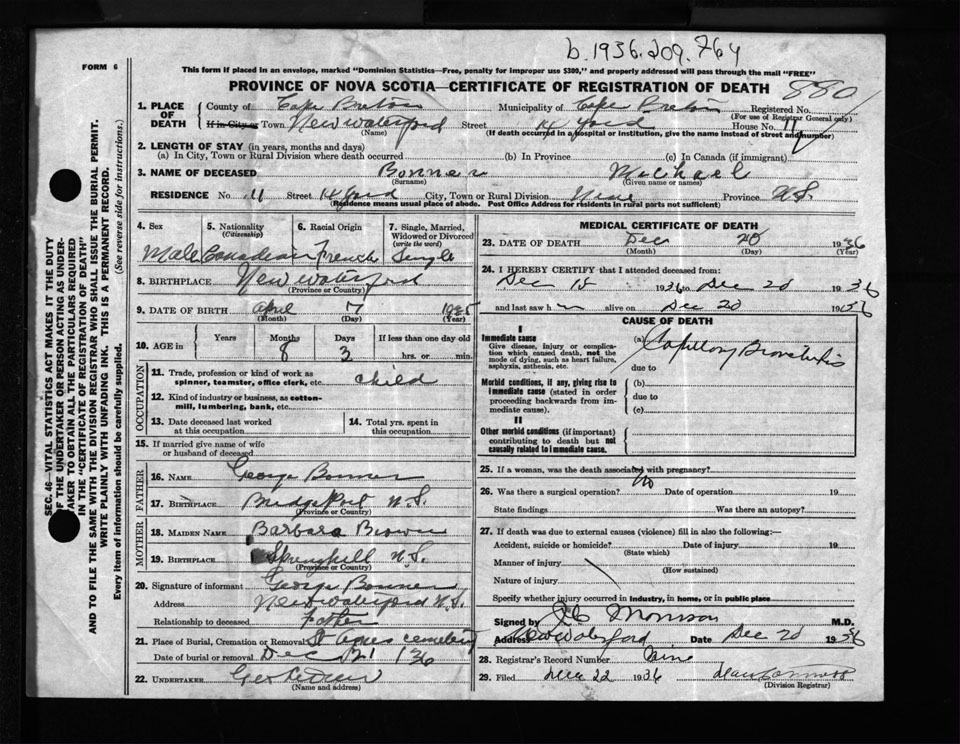 b.1936.209.764
FORM 6
This form if placed in an envelope, marked "Dominion Statistics—Free, penalty for improper use $300," and properly addressed will pass through the mail "FREE"
PROVINCE OF NOVA SCOTIA—CERTIFICATE OF REGISTRATION OF DEATH
880
SEC. 46—VITAL STATISTICS ACT MAKES IT THE DUTY
OF THE UNDERTAKER OR PERSON ACTING AS UNDER-
TAKER TO OBTAIN ALL THE PARTICULARS REQUIRED
IN THE "CERTIFICATE OF REGISTRATION OF DEATH"
AND TO FILE THE SAME WITH THE DIVISION REGISTRAR WHO SHALL ISSUE THE BURIAL PERMIT.
WRITE PLAINLY WITH UNFADING INK. THIS IS A PERMANENT RECORD.
Every item of information should be carefully supplied. (See reverse side for instructions.)
1. PLACE OF DEATH County of Cape Breton Municipality of Cape Breton Registered No.
(For use of Registrar General only)
If in City or Town New Waterford Street 14 Yard House No. 11
(Name) (If death occurred in a hospital or institution, give the name instead of street and number)
2. LENGTH OF STAY (in years, months and days)
(a) In City, Town or Rural Division where death occurred (b) In Province (c) In Canada (if immigrant)
3. NAME OF DECEASED Bonner Michael
(Surname) (Given name or names)
RESIDENCE No. 11 Street 14 Yard City, Town or Rural Division Province N.S.
(Residence means usual place of abode. Post Office Address for residents in rural parts not sufficient)
4. Sex 5. Nationality (Citizenship) 6. Racial Origin 7. Single, Married, Widowed or Divorced (write the word)
Male Canadian French Single
8. BIRTHPLACE New Waterford
(Province or Country)
9. DATE OF BIRTH April 7
(Month) (Day) (Year)
10. AGE in Years Months Days If less than one day old
8 3 hrs. or min.
OCCUPATION
11. Trade, profession or kind of work as spinner, teamster, office clerk, etc. child
12. Kind of industry or business, as cotton-mill, lumbering, bank, etc.
13. Date deceased last worked at this occupation
14. Total yrs. spent in this occupation
15. If married give name of wife or husband of deceased
FATHER
16. NAME George Bonner
17. BIRTHPLACE Bridgeport N.S.
(Province or Country)
MOTHER
18. MAIDEN NAME Barbara Brown
19. BIRTHPLACE Springhill N.S.
(Province or Country)
20. Signature of informant George Bonner
Address New Waterford N.S.
Relationship to deceased Father
21. Place of Burial, Cremation or Removal St Agnes cemetery
Date of burial or removal Dec 21 / 36
22. UNDERTAKER
(Name and address)
MEDICAL CERTIFICATE OF DEATH
23. DATE OF DEATH Dec 20 1936
(Month) (Day) (Year)
24. I HEREBY CERTIFY that I attended deceased from:
Dec 18 1936 to Dec 20 1936
and last saw h m alive on Dec 20 1936
CAUSE OF DEATH
I
Immediate cause
Give disease, injury or complication which caused death, not the mode of dying, such as heart failure, asphyxia, asthenia, etc.
(a) Capillary Bronchitis
due to
Morbid conditions, if any, giving rise to immediate cause (stated in order proceeding backwards from immediate cause).
(b)
due to
(c)
II
Other morbid conditions (if important) contributing to death but not causally related to immediate cause.
25. If a woman, was the death associated with pregnancy?
26. Was there a surgical operation? No Date of operation 19
State findings Was there an autopsy?
27. If death was due to external causes (violence) fill in also the following:—
Accident, suicide or homicide? Date of injury 19
(State which)
Manner of injury
(How sustained)
Nature of injury
Specify whether injury occurred in industry, in home, or in public place
Signed by Morrison M.D.
Address New Waterford Date Dec 20 1936
28. Registrar's Record Number
29. Filed Dec 22 1936
(Division Registrar)